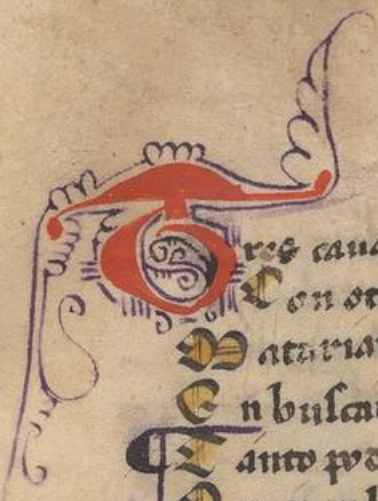 Tres caua
Con ot
Materia
En busca
Tanto pod